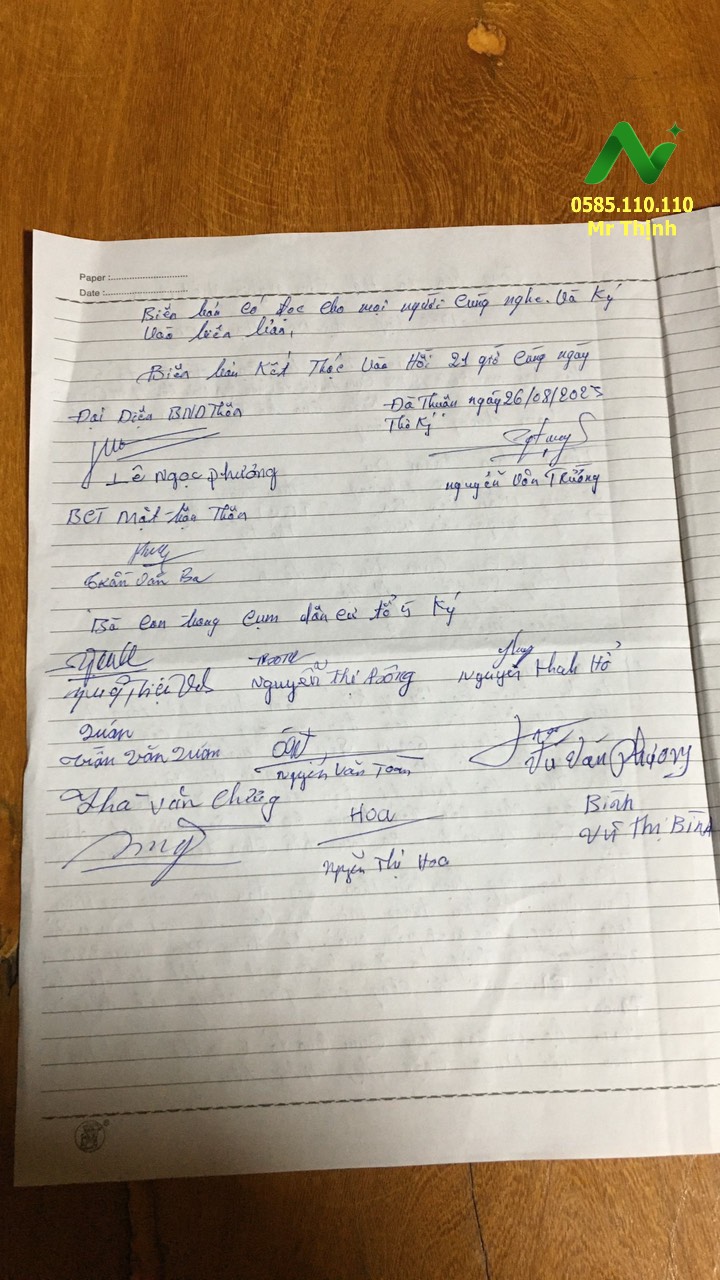 0585.110.110
Mr Thịnh
Paper :
Date :
Biên bản có đọc cho mọi người cùng nghe. Và ký
vào biên bản,
Biên bản kết thúc vào hồi 21 giờ cùng ngày
Đại Diện BND Thôn
Đã Thuân ngày 26/08/2025
Thơ Ký
Lê Ngọc Phương
Nguyễn Văn Trưởng
BCT Mặt trận Thôn
Trần Văn Ba
Bà con trong cụm dân cư tổ 5 Ký
Nguyễn Thị
Nguyễn Hồ
Quán
Trần Văn Quán
Nguyễn Văn Toàn
Vũ Văn Phương
Văn Chung
HOA
Nguyễn Thị Hoa
Bình
Vũ Thị Bình